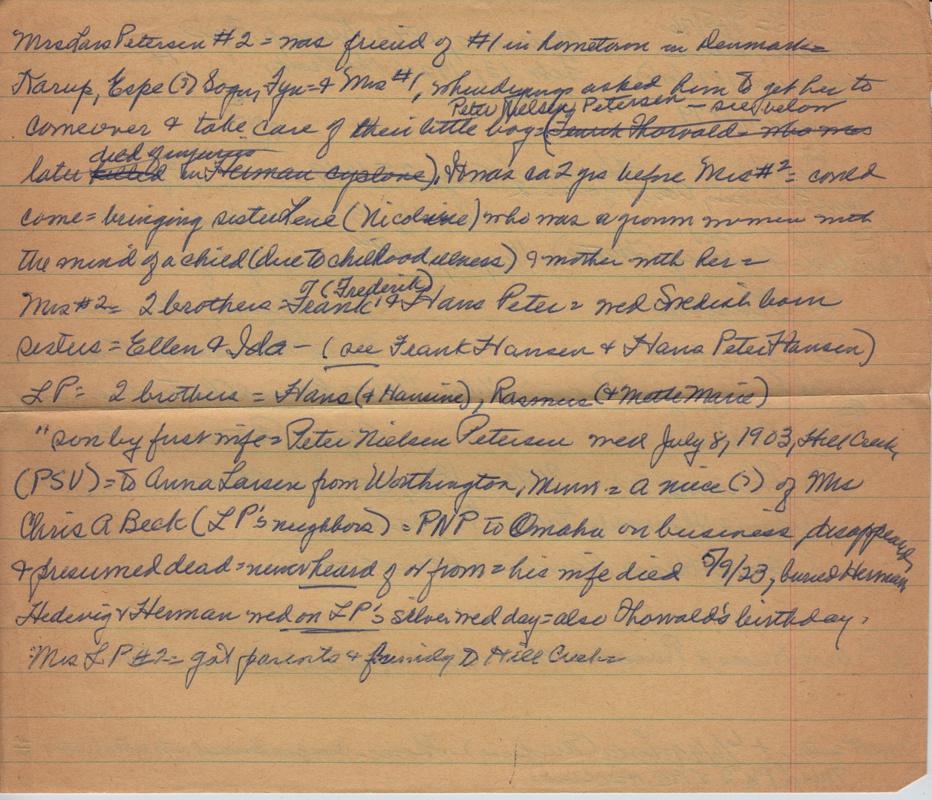 Mrs Lars Petersen #2 = was friend of #1 in hometown in Denmark =
Karup, Espe (?) Sogn, Fyn = & Mrs #1, when dying asked him to get her to
Peter Nielsen Petersen — see below
come over & take care of their little boy = (Search Thorvald = who was
died of injurys
later killed in Herman cyclone), It was ca 2 yrs before Mrs #2 = could
come = bringing sister Lene (Nicoline) who was a grown women with
the mind of a child (due to childhood illness) & mother with her =
T (Frederik)
Mrs #2 = 2 brothers = Frank & Hans Peter = wed Swedish born
sisters = Ellen & Ida — (see Frank Hansen & Hans Peter Hansen)
LP = 2 brothers = Hans (& Hansine), Rasmus (& Mette Marie)
" son by first wife = Peter Nielsen Petersen wed July 8, 1903, Hill Creek,
(PSV) = to Anna Larsen from Worthington, Minn = a niece (?) of Mrs
Chris A Beck (LP's neighbors) = PNP to Omaha on business disappeared,
& presumed dead = never heard of or from = his wife died 5/9/23, buried Herman
Hedevig & Herman wed on LP's silver wed day = also Thorvald's birthday.
Mrs LP #2 = got parents & family to Hill Creek =